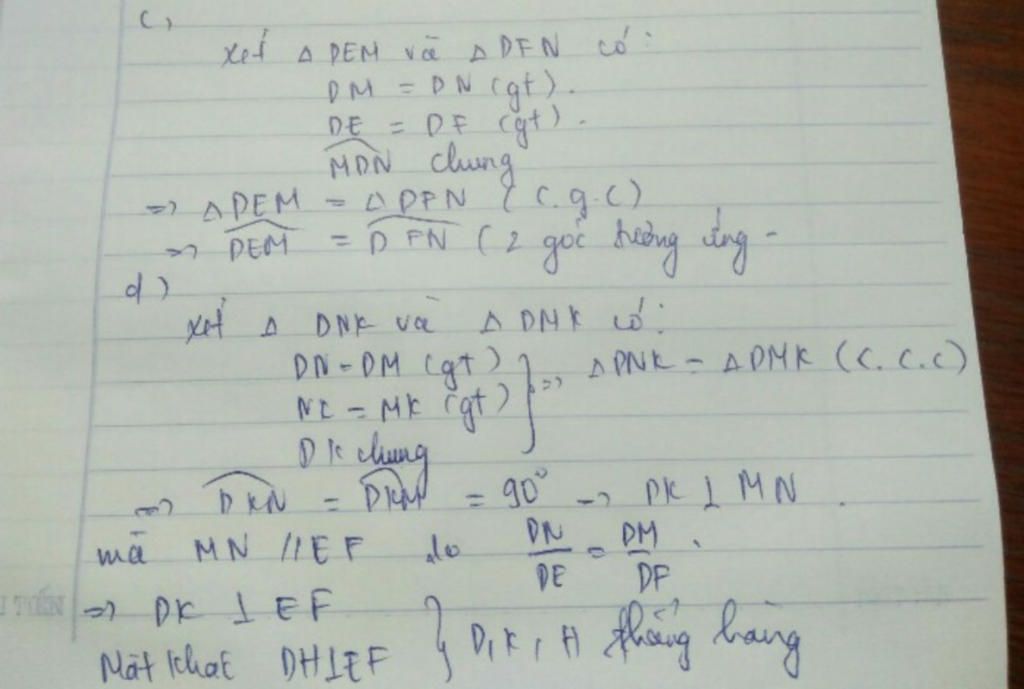 c,
Xét Δ DEM và Δ DFN có:
DM = DN (gt).
DE = DF (gt).
\widehat{MDN} chung
=> Δ DEM = Δ DFN (c.g.c)
=> \widehat{DEM} = \widehat{DFN} (2 góc tương ứng -
d)
Xét Δ DNK và Δ DMK có:
DN = DM (gt)
NK = MK (gt) } => Δ DNK = Δ DMK (c.c.c)
DK chung
=> \widehat{DKN} = \widehat{DKM} = 90° -> DK ⊥ MN.
mà MN // EF do DN/DE = DM/DF.
=> DK ⊥ EF
Mặt khác DH ⊥ EF } D, K, H thẳng hàng